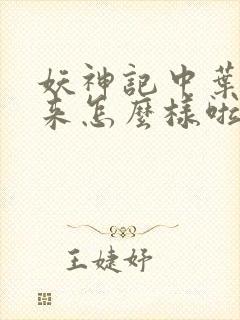 妖神記中葉
來怎麼樣啦
王婕妤